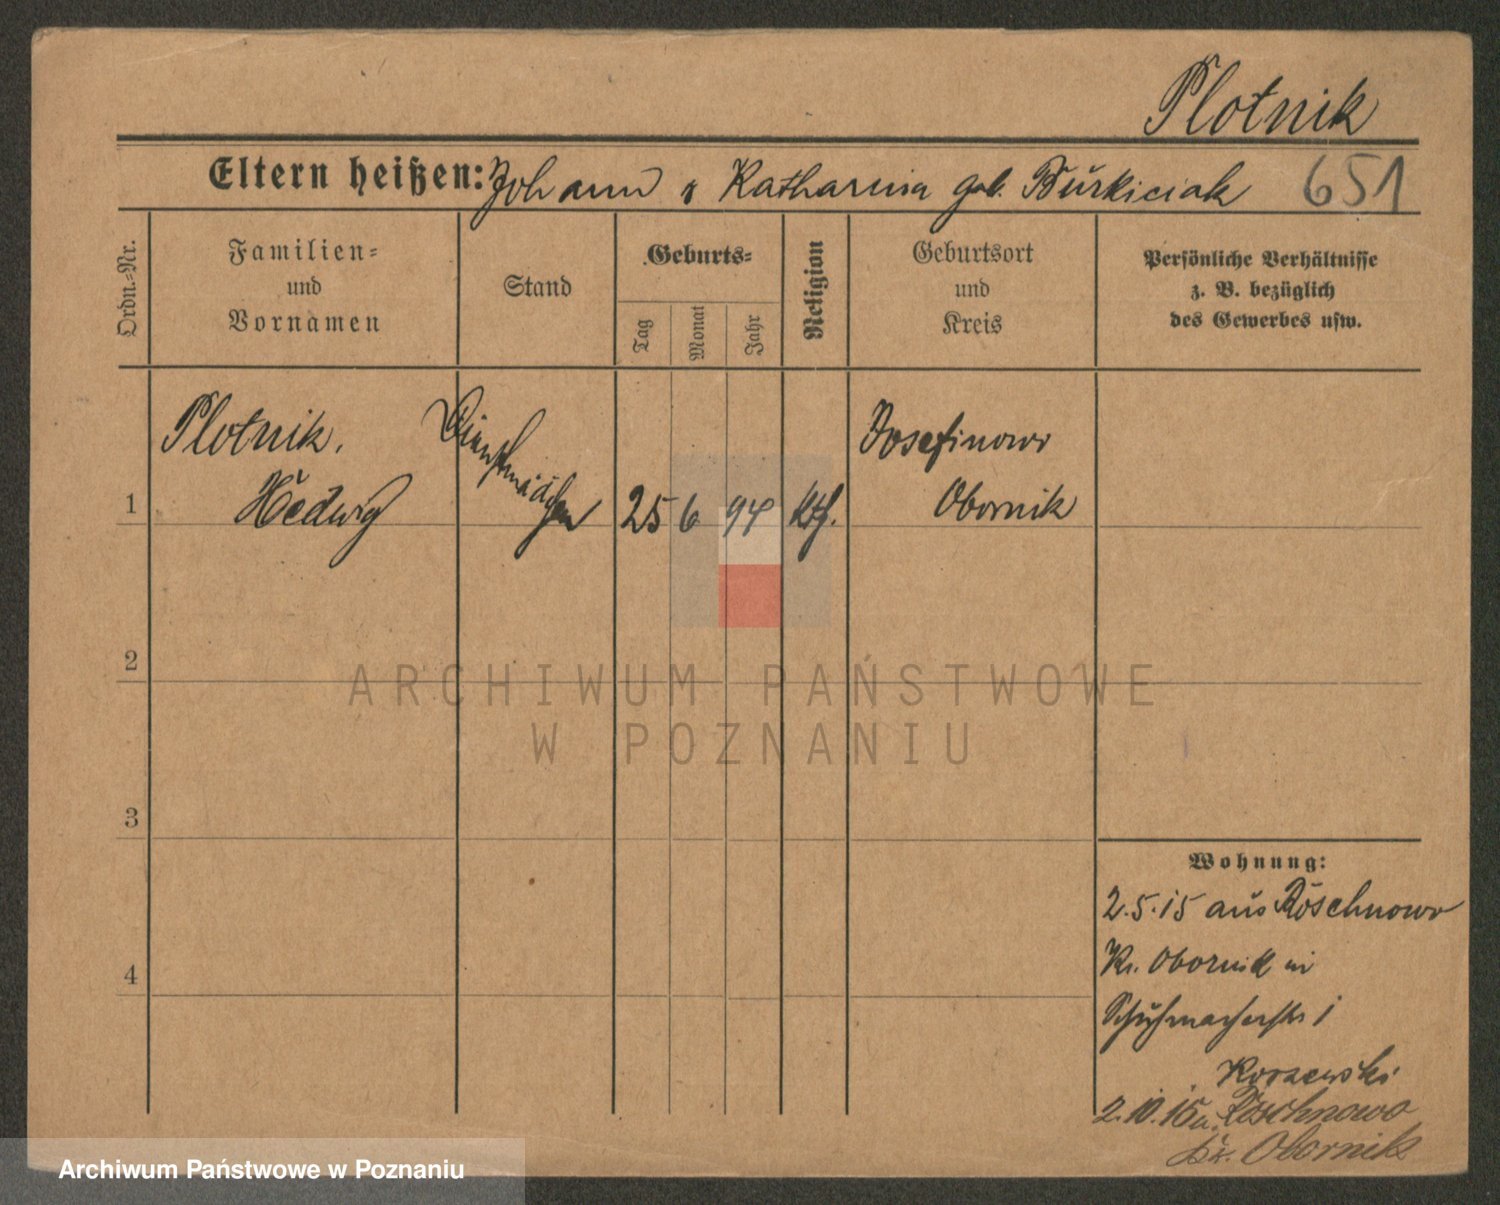 Plotnik
Eltern heißen: Johann & Katharina geb. Burkiciak 651
Ordn.-Nr.
Familien-
und
Vornamen
Stand
Geburts-
Tag
Monat
Jahr
Religion
Geburtsort
und
Kreis
Persönliche Verhältnisse
z. B. bezüglich
des Gewerbes usw.
1
Plotnik.
Hedwig
Dienstmädchen
25
6
94
kth.
Josefinowo
Obornik
2
3
4
Wohnung:
2.5.15 aus Röschnowo
Kr. Obornik in
Schuhmacherstr 1
Koszewski
2.10.15 n. Röschnowo
Kr. Obornik
ARCHIWUM PAŃSTWOWE
W POZNANIU
Archiwum Państwowe w Poznaniu